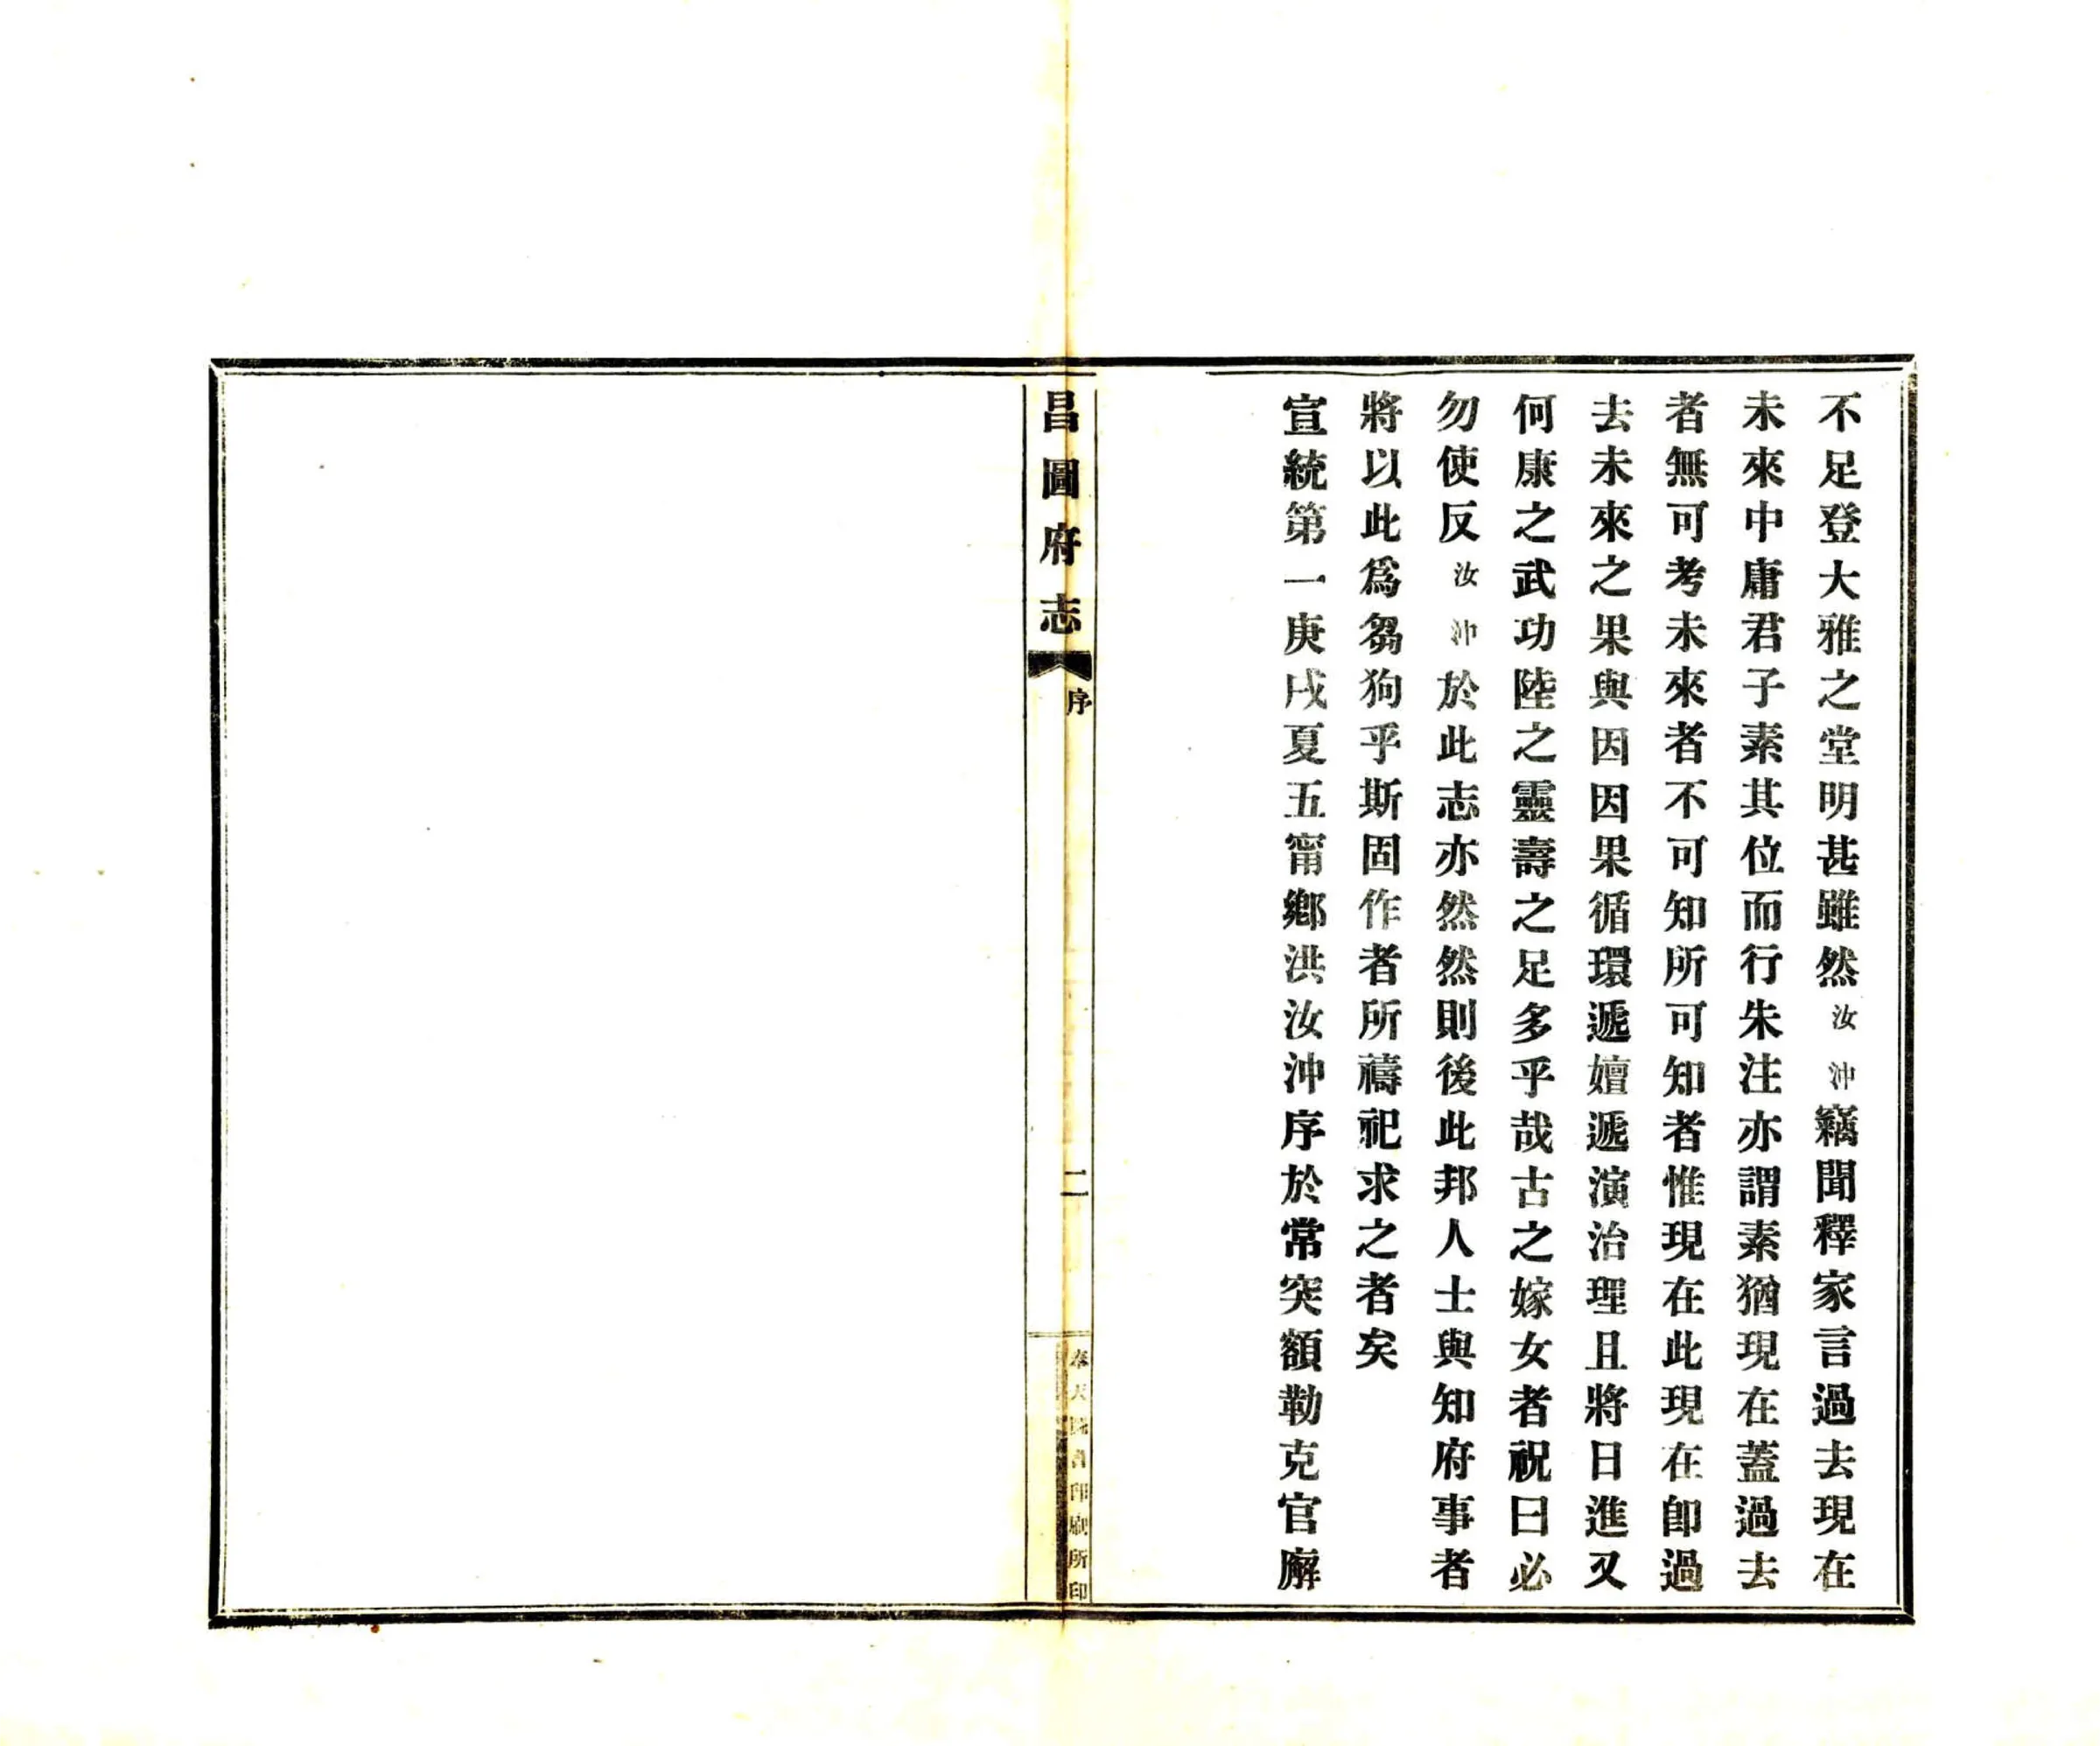 不足登大雅之堂明甚雖然汝沖竊聞釋家言過去現在
未來中庸君子素其位而行朱注亦謂素猶現在蓋過去
者無可考未來者不可知所可知者惟現在此現在卽過
去未來之果與因因果循環遞嬗遞演治理且將日進又
何康之武功陸之靈壽之足多乎哉古之嫁女者祝曰必
勿使反汝沖於此志亦然然則後此邦人士與知府事者
將以此爲芻狗乎斯固作者所禱祀求之者矣
宣統第一庚戌夏五甯鄉洪汝沖序於常突額勒克官廨
昌圖府志
序
二
奉天圖書印刷所印